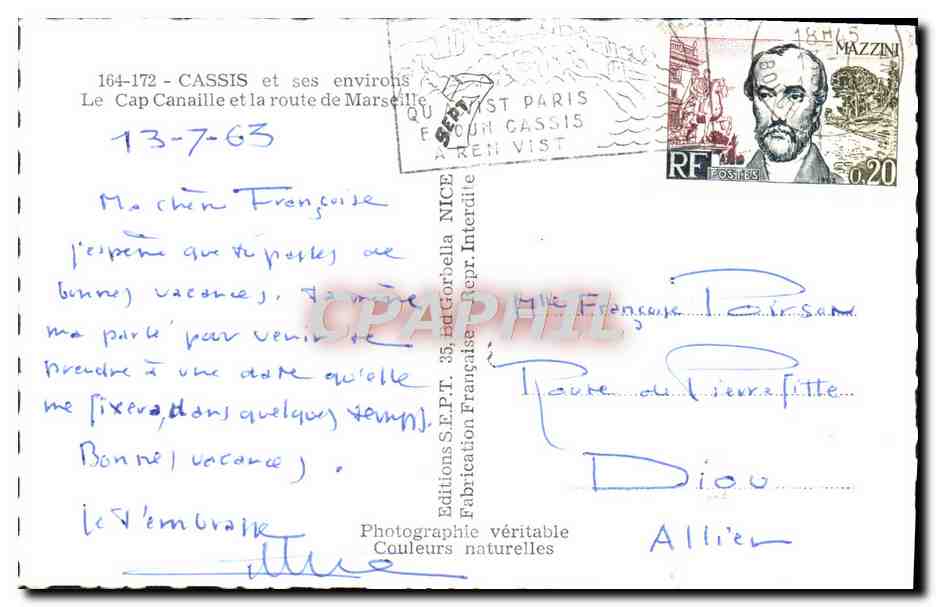 164-172 - CASSIS et ses environs
Le Cap Canaille et la route de Marseille
13-7-63
Ma chère Françoise
j'espère que tu passes de
bonnes vacances. Ta mère
ma parlé par venir te
prendre à une date qu'elle
me fixera, dans quelques temps.
Bonnes vacances.
Je t'embrasse
Editions S.E.P.T. 35, Bd Gorbella NICE
Fabrication Française - Repr. Interdite
Photographie véritable
Couleurs naturelles
QU VIST PARIS
E NOUN CASSIS
A REN VIST
SEPT
18H45
MAZZINI
RF
POSTES
0,20
Mlle Françoise Poirson
Route de Pierrefitte
Diou
Allier
CPAPHIL